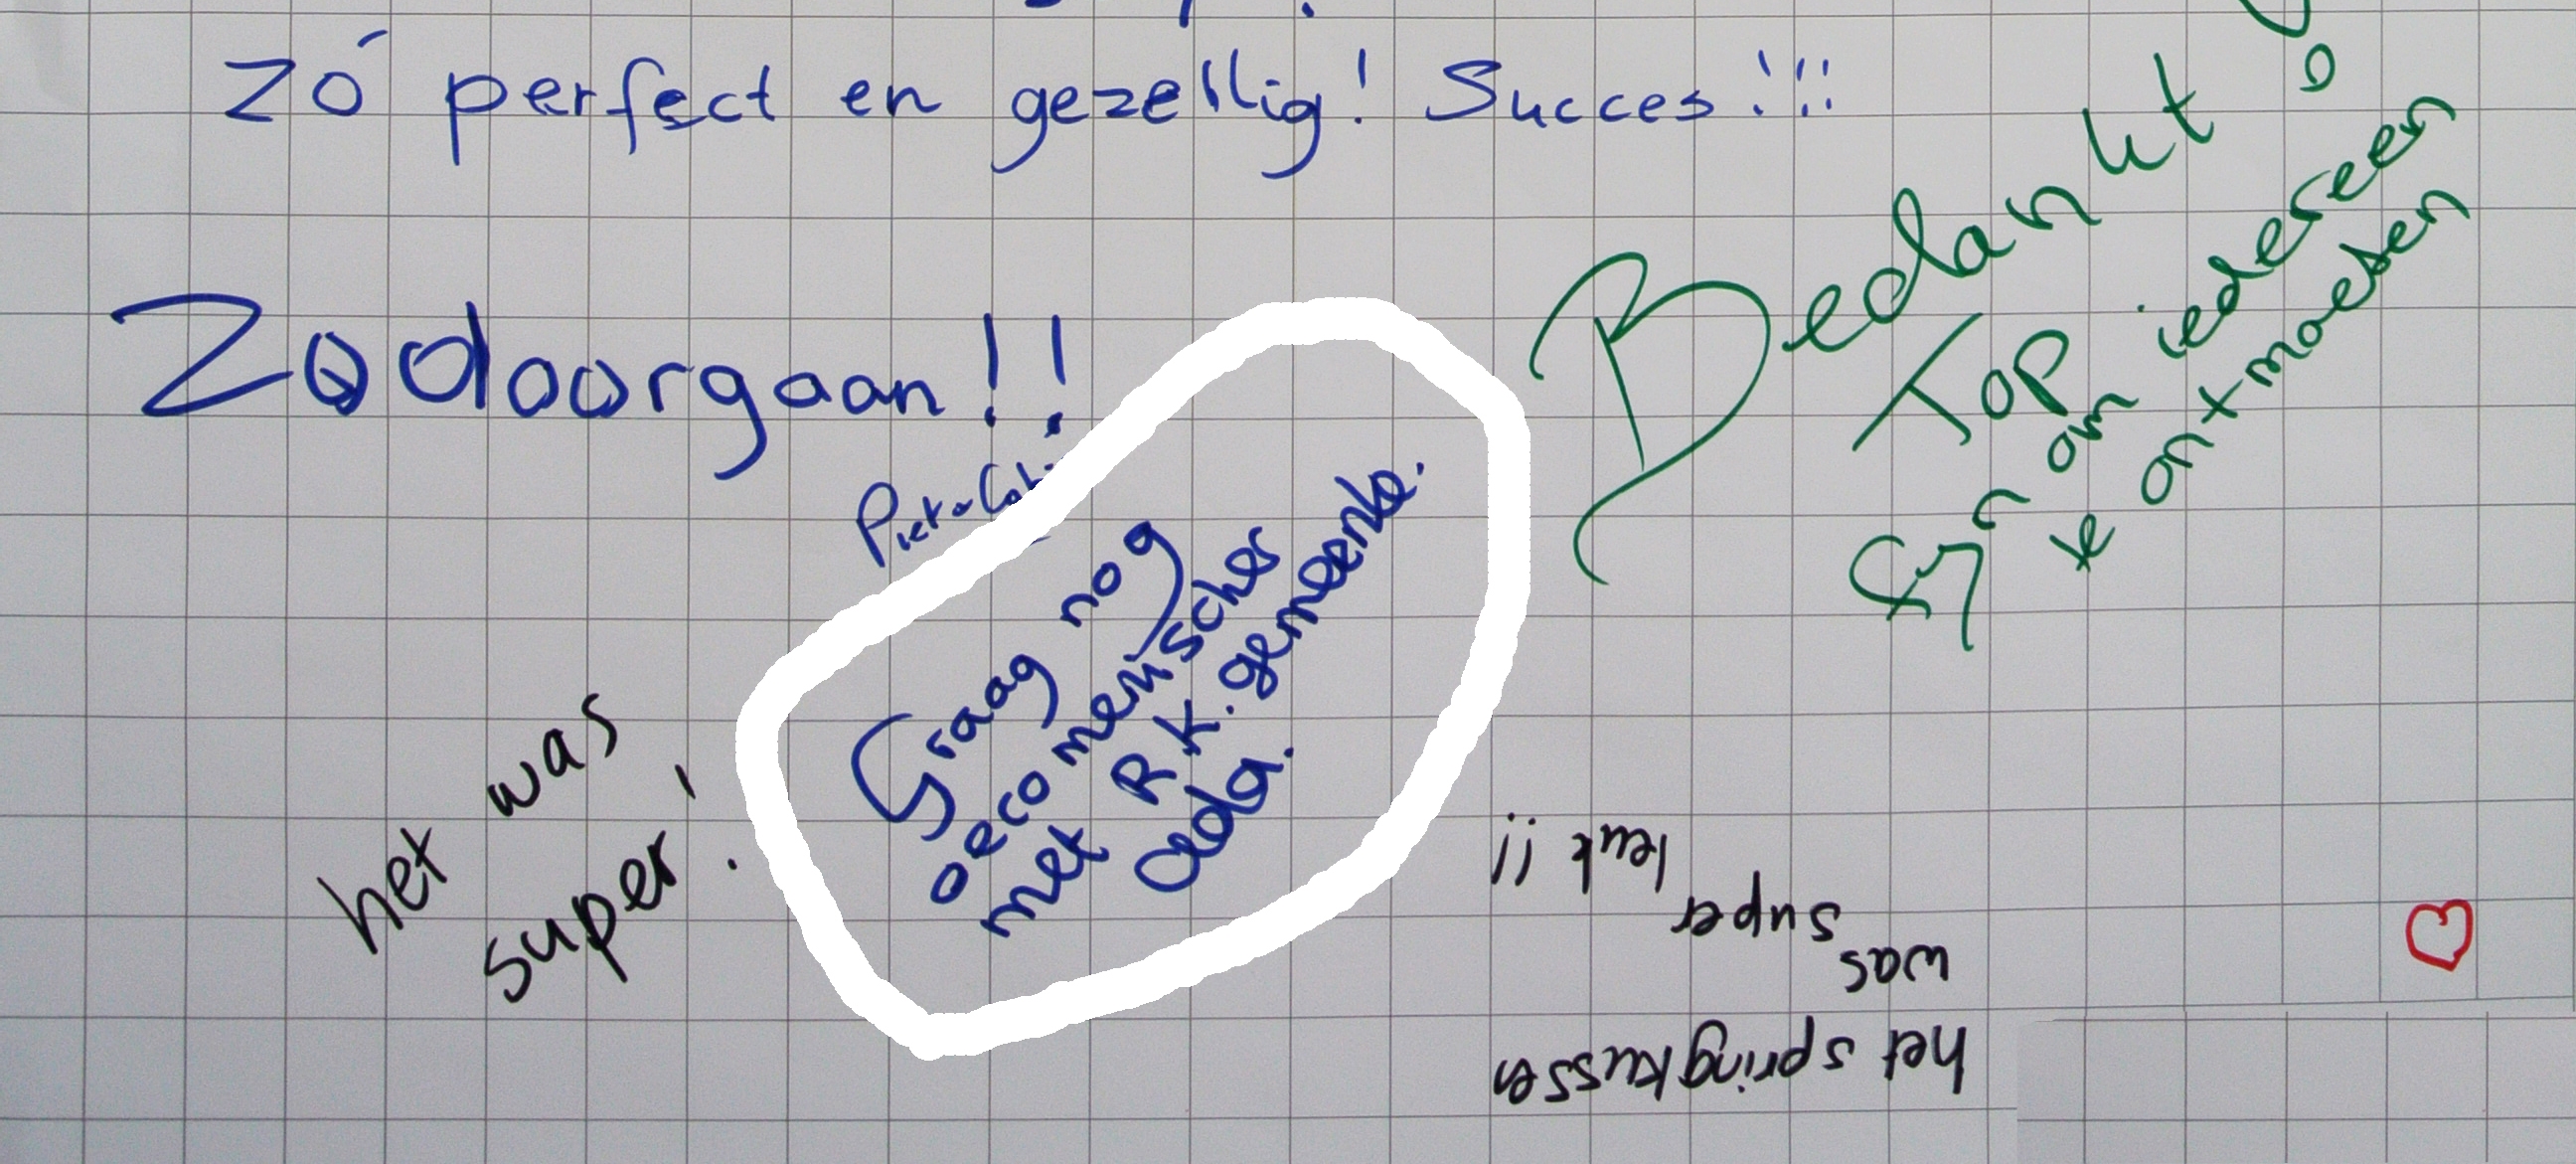 Zó perfect en gezellig! Succes!!!
Zo doorgaan!!
Piet
Bedankt
Top
fijn om iedereen
te ontmoeten
Graag nog
oecomenischer
met R.K. gemeente.
Ada.
het was
super!
het springkussen
was
super
leuk !!